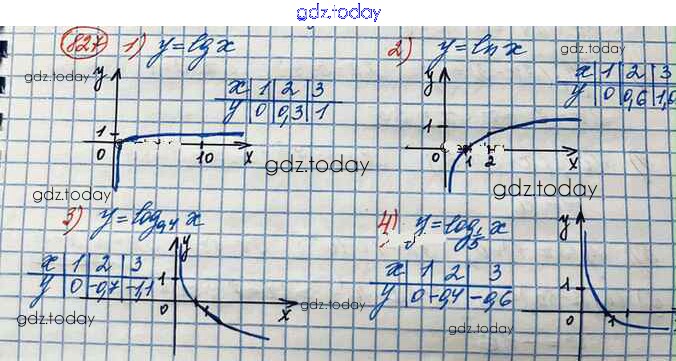 gdz.today
827 1) y=lgx 2) y=lnx
gdz.today gdz.today
x 1 2 3
y 0 0,3 1
x 1 2 3
y 0 0,6 1,0
y 1 0 10 x
y 1 0 1 2 x
gdz.today gdz.today
gdz.today
3) y=log0,4 x 4) y=log1/5 x
x 1 2 3
y 0 -0,7 -1,1
x 1 2 3
y 0 -0,4 -0,6
y 1 x
y 1 0 1
gdz.today gdz.today
gdz.today gdz.today